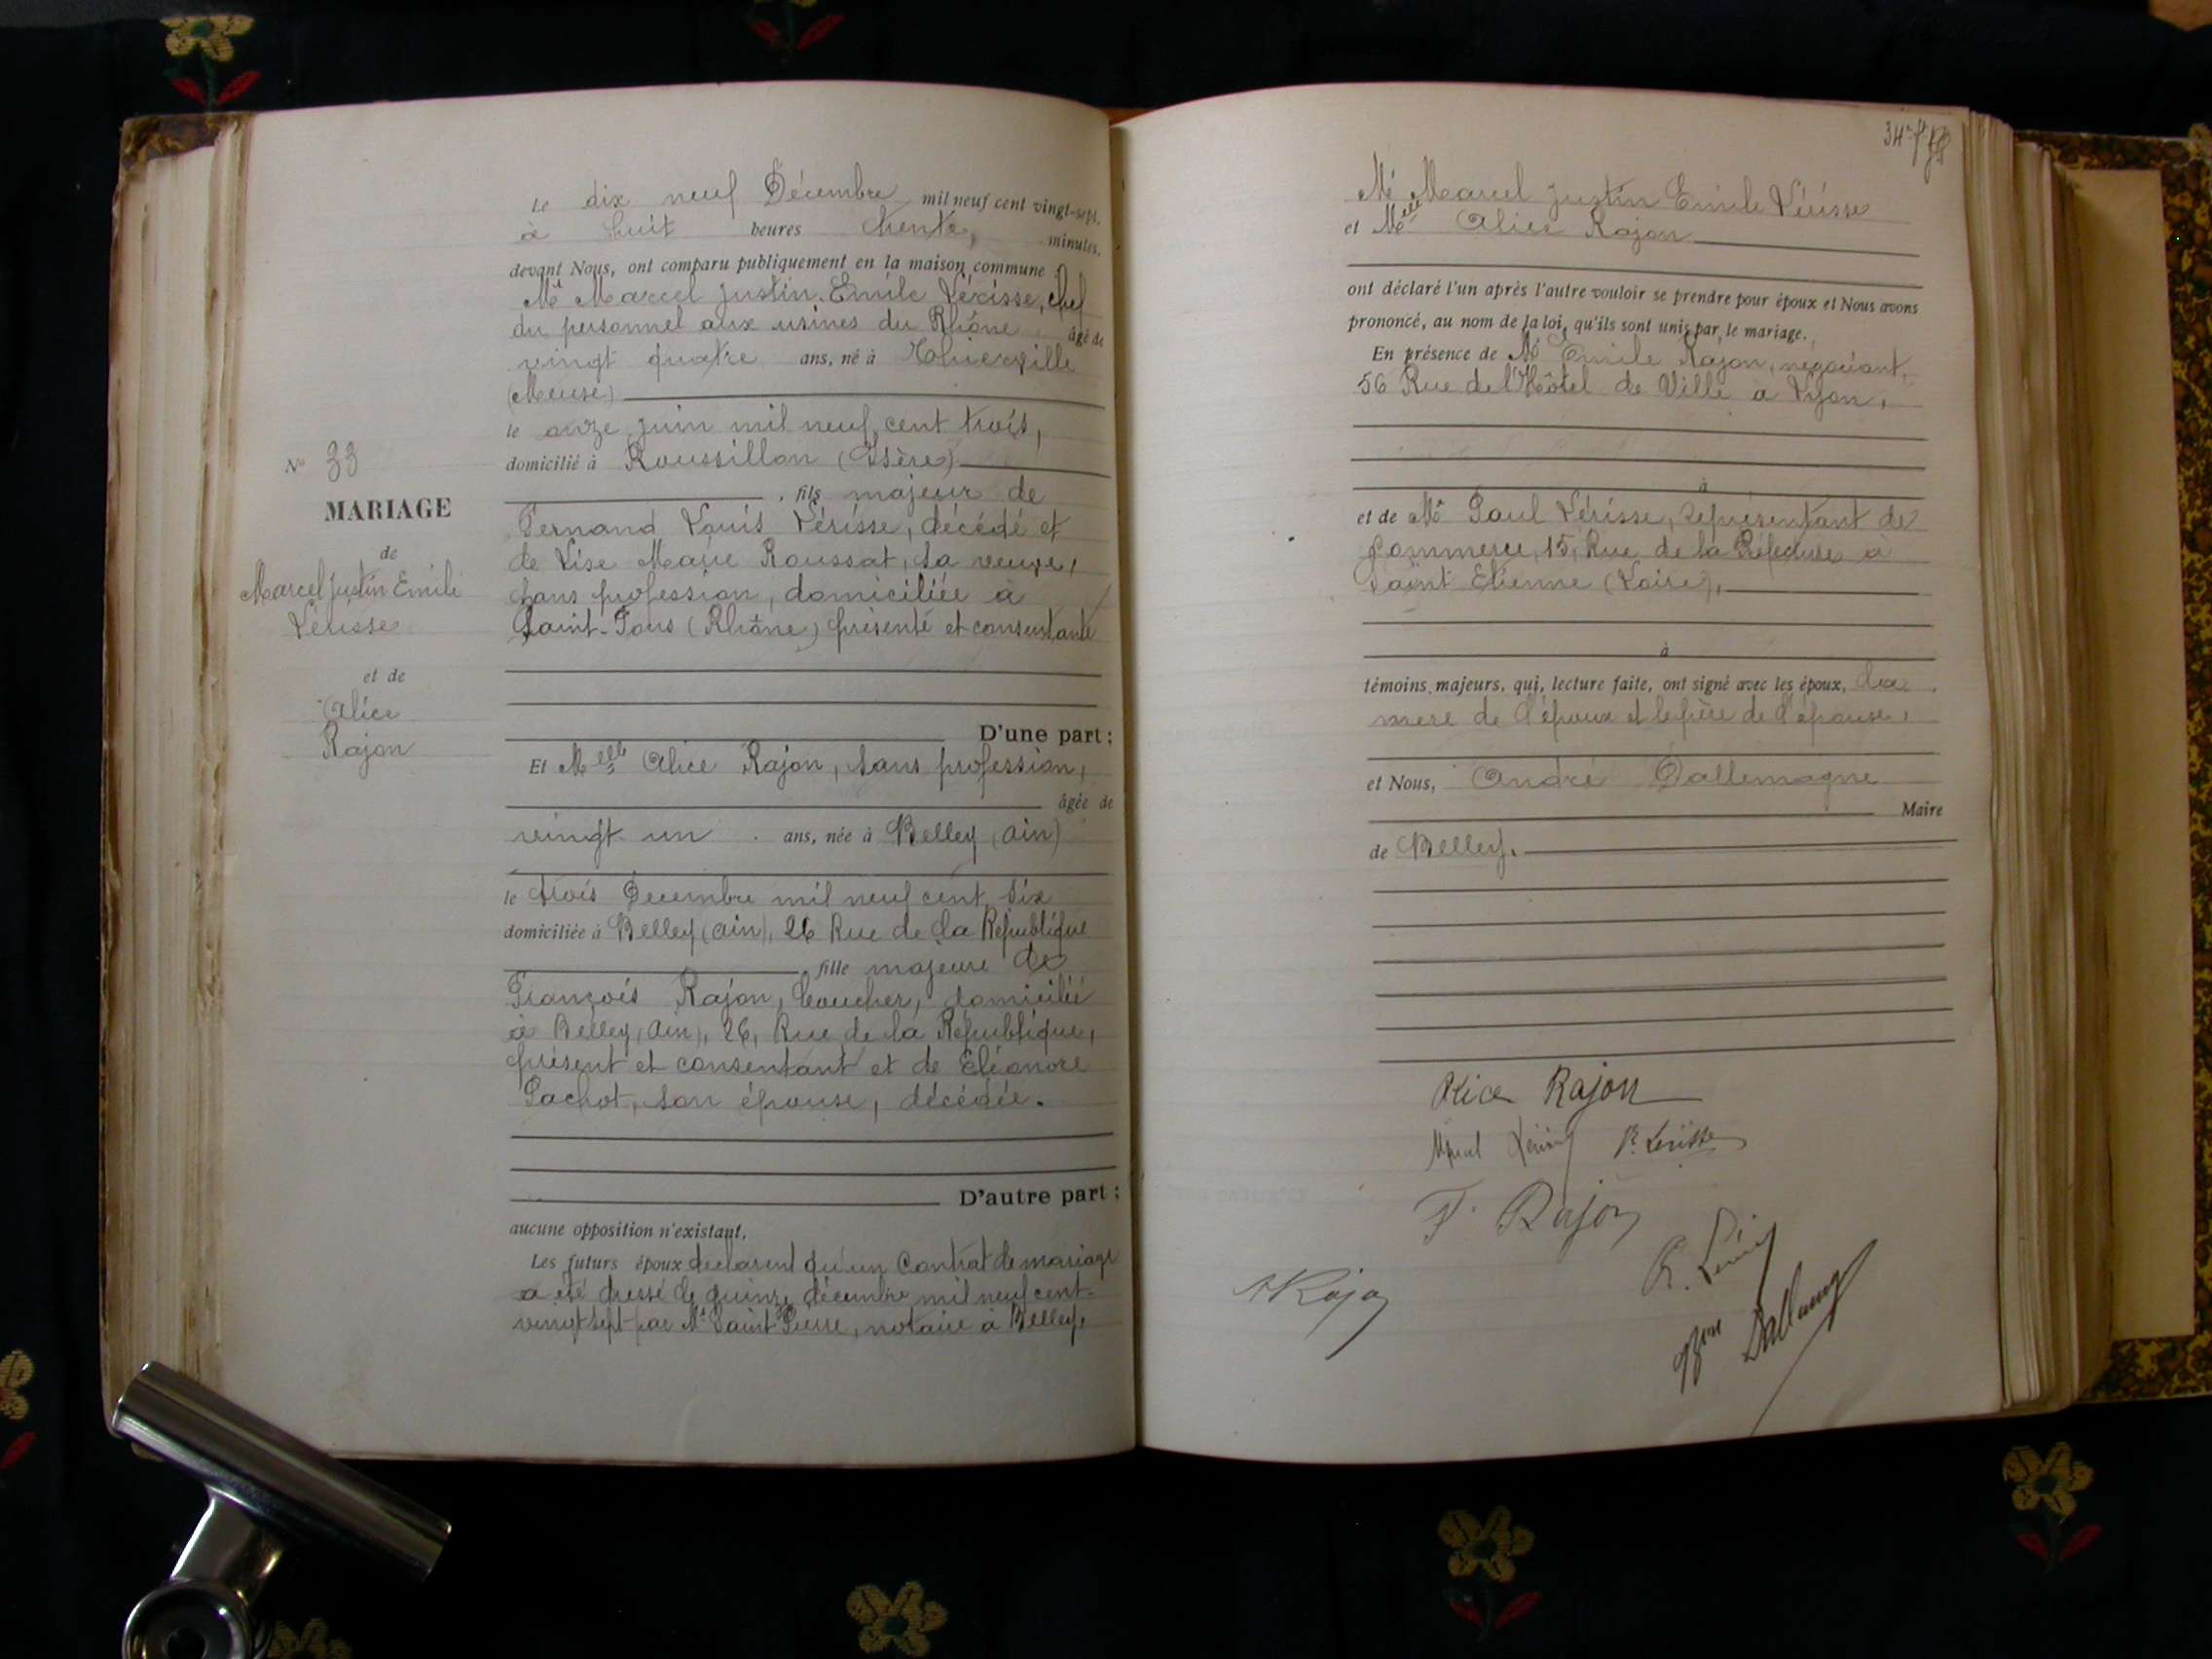 Le dix neuf Décembre mil neuf cent vingt-sept,
à huit heures trente, minutes,
devant Nous, ont comparu publiquement en la maison commune :
Mr Marcel Justin Emile Lérisse, chef
du personnel aux usines du Rhône âgé de
vingt quatre ans, né à Thierville
(Meuse)
le onze juin mil neuf cent trois,
domicilié à Roussillon (Isère)
, fils majeur de
Fernand Louis Lérisse, décédé et
de Lise Marie Roussat, sa veuve,
sans profession, domiciliée à
Saint-Fons (Rhône) présente et consentante
D'une part ;
Et Melle Alice Rajon, sans profession,
âgée de
vingt un ans, née à Belley (Ain)
le trois Décembre mil neuf cent six
domiciliée à Belley (Ain), 26 Rue de la République
, fille majeure de
François Rajon, boucher, domicilié
à Belley, Ain), 26, Rue de la République,
présent et consentant et de Eléonore
Pachot, son épouse, décédée.
D'autre part ;
aucune opposition n'existant,
Les futurs époux déclarent qu'un Contrat de mariage
a été dressé le quinze décembre mil neuf cent-
vingt sept par Me Saint Pierre, notaire à Belley,
No 33
MARIAGE
de
Marcel Justin Emile
Lérisse
et de
Alice
Rajon
34e ft
Mr Marcel Justin Emile Lérisse
et Melle Alice Rajon
ont déclaré l'un après l'autre vouloir se prendre pour époux et Nous avons
prononcé, au nom de la loi, qu'ils sont unis par le mariage.
En présence de Mr Emile Rajon, négociant,
56 Rue de l'Hôtel de Ville à Lyon,
à
et de Mr Paul Lérisse, représentant de
Commerce, 15, Rue de la Préfecture à
Saint Etienne (Loire),
à
témoins majeurs, qui, lecture faite, ont signé avec les époux, la
mère de l'époux et le père de l'épouse,
et Nous, André Dallemagne
Maire
de Belley.
Alice Rajon
Marcel Lérisse Vve Lérisse
F. Rajon
Rajon
Dallemagne